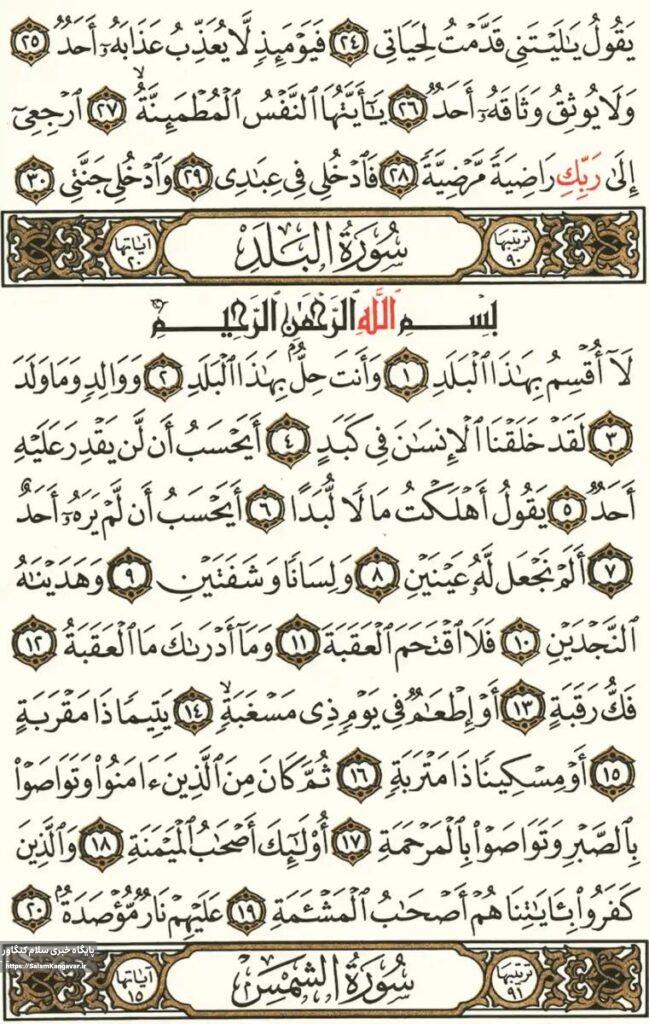 يَقُولُ يَٰلَيْتَنِي قَدَّمْتُ لِحَيَاتِي ٢٤ فَيَوْمَئِذٍ لَّا يُعَذِّبُ عَذَابَهُۥٓ أَحَدٌ ٢٥
وَلَا يُوثِقُ وَثَاقَهُۥٓ أَحَدٌ ٢٦ يَٰٓأَيَّتُهَا ٱلنَّفْسُ ٱلْمُطْمَئِنَّةُ ٢٧ ٱرْجِعِيٓ
إِلَىٰ رَبِّكِ رَاضِيَةً مَّرْضِيَّةً ٢٨ فَٱدْخُلِي فِي عِبَٰدِي ٢٩ وَٱدْخُلِي جَنَّتِي ٣٠
ترتيبها ٩٠ سُورَةُ الْبَلَدِ آياتها ٢٠
بِسْمِ ٱللَّهِ ٱلرَّحْمَٰنِ ٱلرَّحِيمِ
لَآ أُقْسِمُ بِهَٰذَا ٱلْبَلَدِ ١ وَأَنتَ حِلٌّۢ بِهَٰذَا ٱلْبَلَدِ ٢ وَوَالِدٍ وَمَا وَلَدَ
٣ لَقَدْ خَلَقْنَا ٱلْإِنسَٰنَ فِي كَبَدٍ ٤ أَيَحْسَبُ أَن لَّن يَقْدِرَ عَلَيْهِ
أَحَدٌ ٥ يَقُولُ أَهْلَكْتُ مَالًا لُّبَدًا ٦ أَيَحْسَبُ أَن لَّمْ يَرَهُۥٓ أَحَدٌ
٧ أَلَمْ نَجْعَل لَّهُۥ عَيْنَيْنِ ٨ وَلِسَانًا وَشَفَتَيْنِ ٩ وَهَدَيْنَٰهُ
ٱلنَّجْدَيْنِ ١٠ فَلَا ٱقْتَحَمَ ٱلْعَقَبَةَ ١١ وَمَآ أَدْرَىٰكَ مَا ٱلْعَقَبَةُ ١٢
فَكُّ رَقَبَةٍ ١٣ أَوْ إِطْعَٰمٌ فِي يَوْمٍ ذِي مَسْغَبَةٍ ١٤ يَتِيمًا ذَا مَقْرَبَةٍ
١٥ أَوْ مِسْكِينًا ذَا مَتْرَبَةٍ ١٦ ثُمَّ كَانَ مِنَ ٱلَّذِينَ ءَامَنُوا۟ وَتَوَاصَوْا۟
بِٱلصَّبْرِ وَتَوَاصَوْا۟ بِٱلْمَرْحَمَةِ ١٧ أُو۟لَٰٓئِكَ أَصْحَٰبُ ٱلْمَيْمَنَةِ ١٨ وَٱلَّذِينَ
كَفَرُوا۟ بِـَٔايَٰتِنَا هُمْ أَصْحَٰبُ ٱلْمَشْـَٔمَةِ ١٩ عَلَيْهِمْ نَارٌ مُّؤْصَدَةٌۢ ٢٠
پایگاه خبری سلام کنگاور
https://SalamKangavar.ir
ترتيبها ٩١ سُورَةُ الشَّمْسِ آياتها ١٥